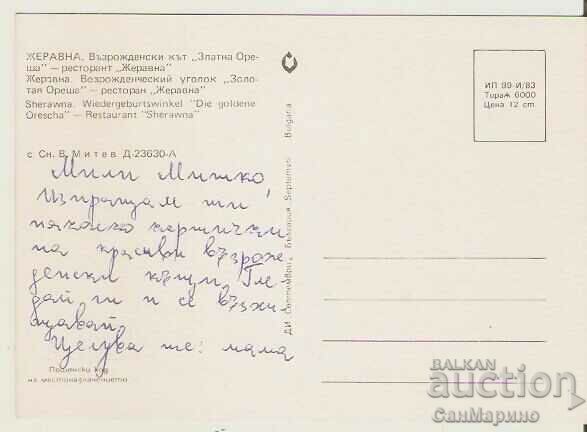 ЖЕРАВНА. Възрожденски кът „Златна Оре-
ша" — ресторант „Жеравна"
Жеравна. Возрожденческий уголок „Золо-
тая Ореша" — ресторан „Жеравна"
Sherawna. Wiedergeburtswinkel "Die goldene
Orescha" — Restaurant "Sherawna"
с Сн. В. Митев Д-23630-А
Мили Мишко,
Изпращам ти
няколко картички
на красиви възрож-
денски къщи. Гле-
дай ги и се възхи-
щавай.
Целува те: мама
Пощенски код
на местоназначението
ДИ „Септември", България „Septemvri" Bulgaria
ИП 99-И/83
Тираж 6000
Цена 12 ст.
BALKAN
auction
СанМарино